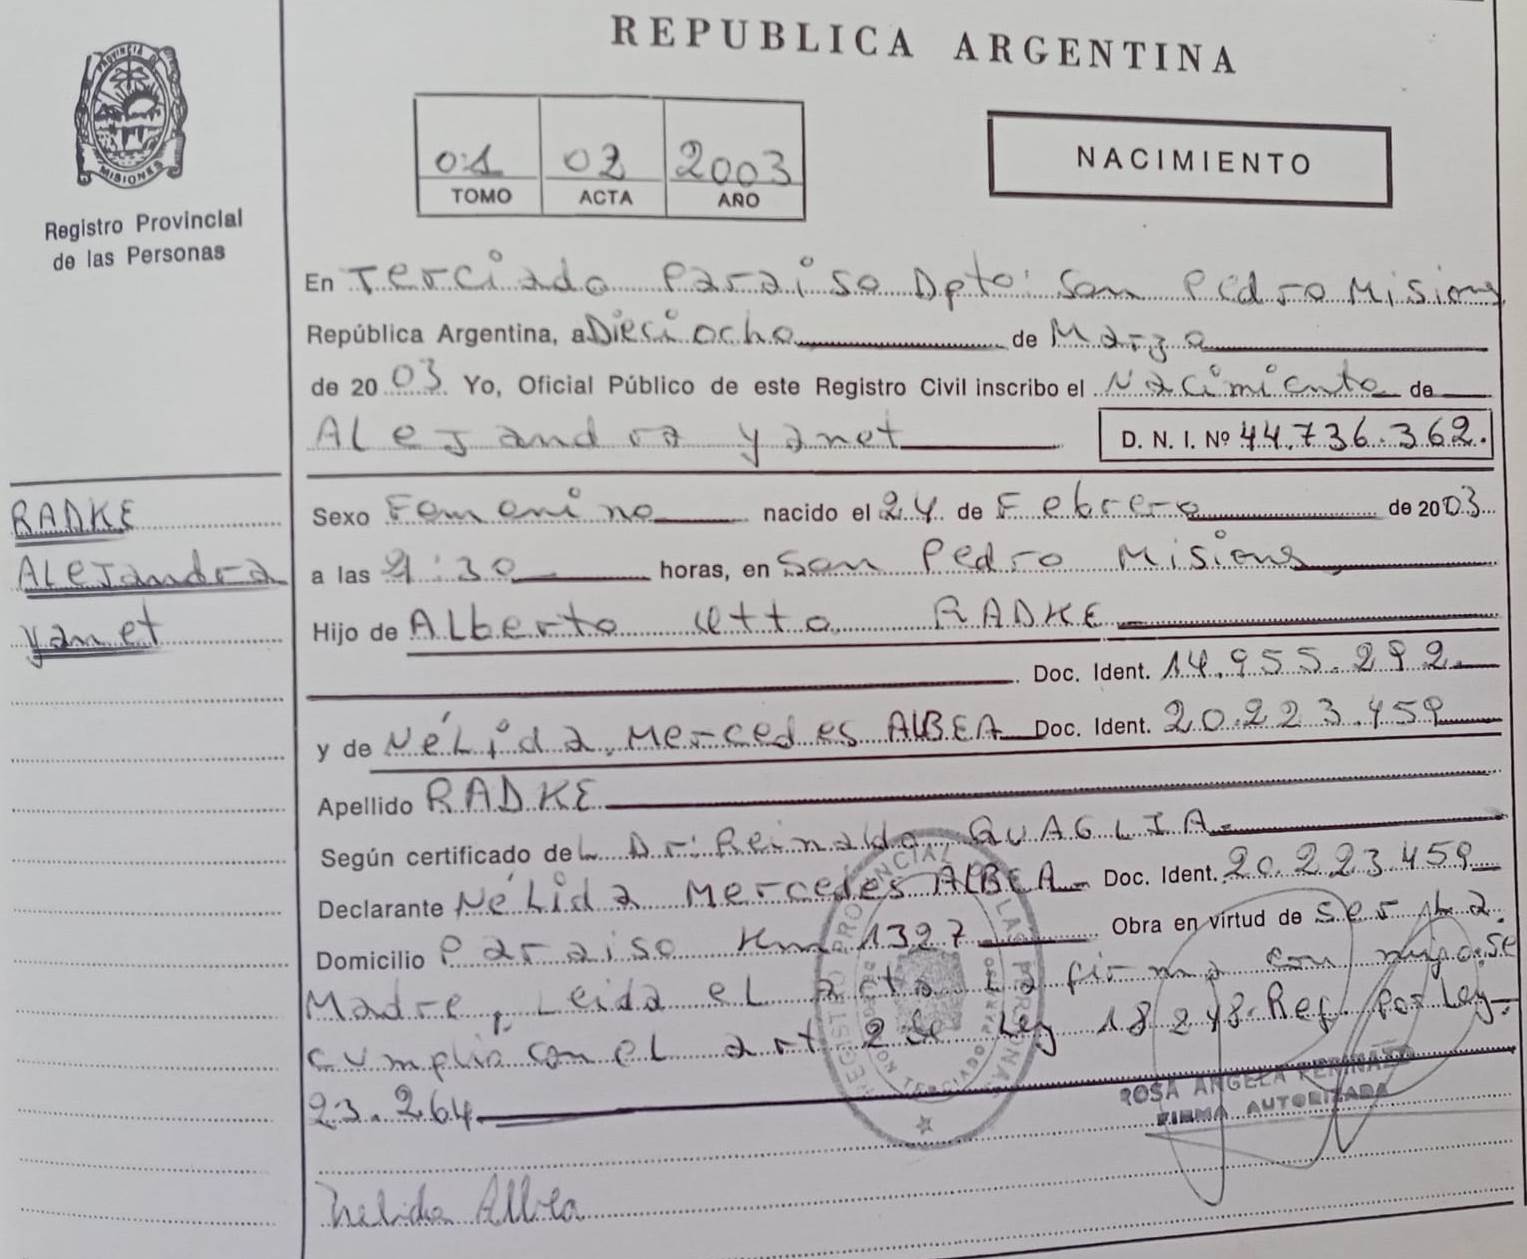 REPUBLICA ARGENTINA
PROVINCIA
MISIONES
Registro Provincial
de las Personas
01 02 2003
TOMO ACTA AÑO
NACIMIENTO
En Terciado Paraiso Dpto: San Pedro Misiones
República Argentina, a Dieciocho de Marzo
de 2003 Yo, Oficial Público de este Registro Civil inscribo el Nacimiento de
Alejandra yanet D. N. I. Nº 44.736.362.
RADKE
Alejandra
yanet
Sexo Femenino nacido el 24 de Febrero de 2003
a las 9:30 horas, en San Pedro Misiones
Hijo de Alberto Otto RADKE
Doc. Ident. 14.955.292
y de Nélida Mercedes ALBEA Doc. Ident. 20.223.459
Apellido RADKE
Según certificado del Dr: Reinaldo QUAGLIA
Declarante Nélida Mercedes ALBEA Doc. Ident. 20.223.459
Domicilio Paraiso Km 1327 Obra en virtud de ser la
Madre, Leida el acta la firma con migo. Se
cumplio con el art 2 de Ley 18248. Ref por Ley
23.264
ROSA ANGELA
FIRMA AUTORIZADA
Nelida Albea